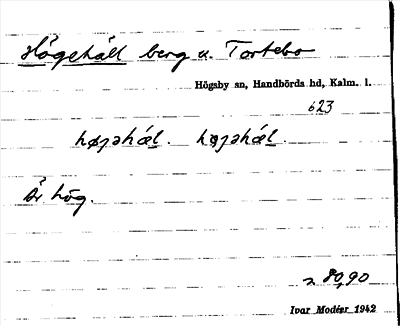 Högehäll berg u. Tortebo
Högsby sn, Handbörds hd, Kalm. l.
623
høɟəhæl. høɟəhæl.
Är hög.
80,90
Ivar Modéer 1942